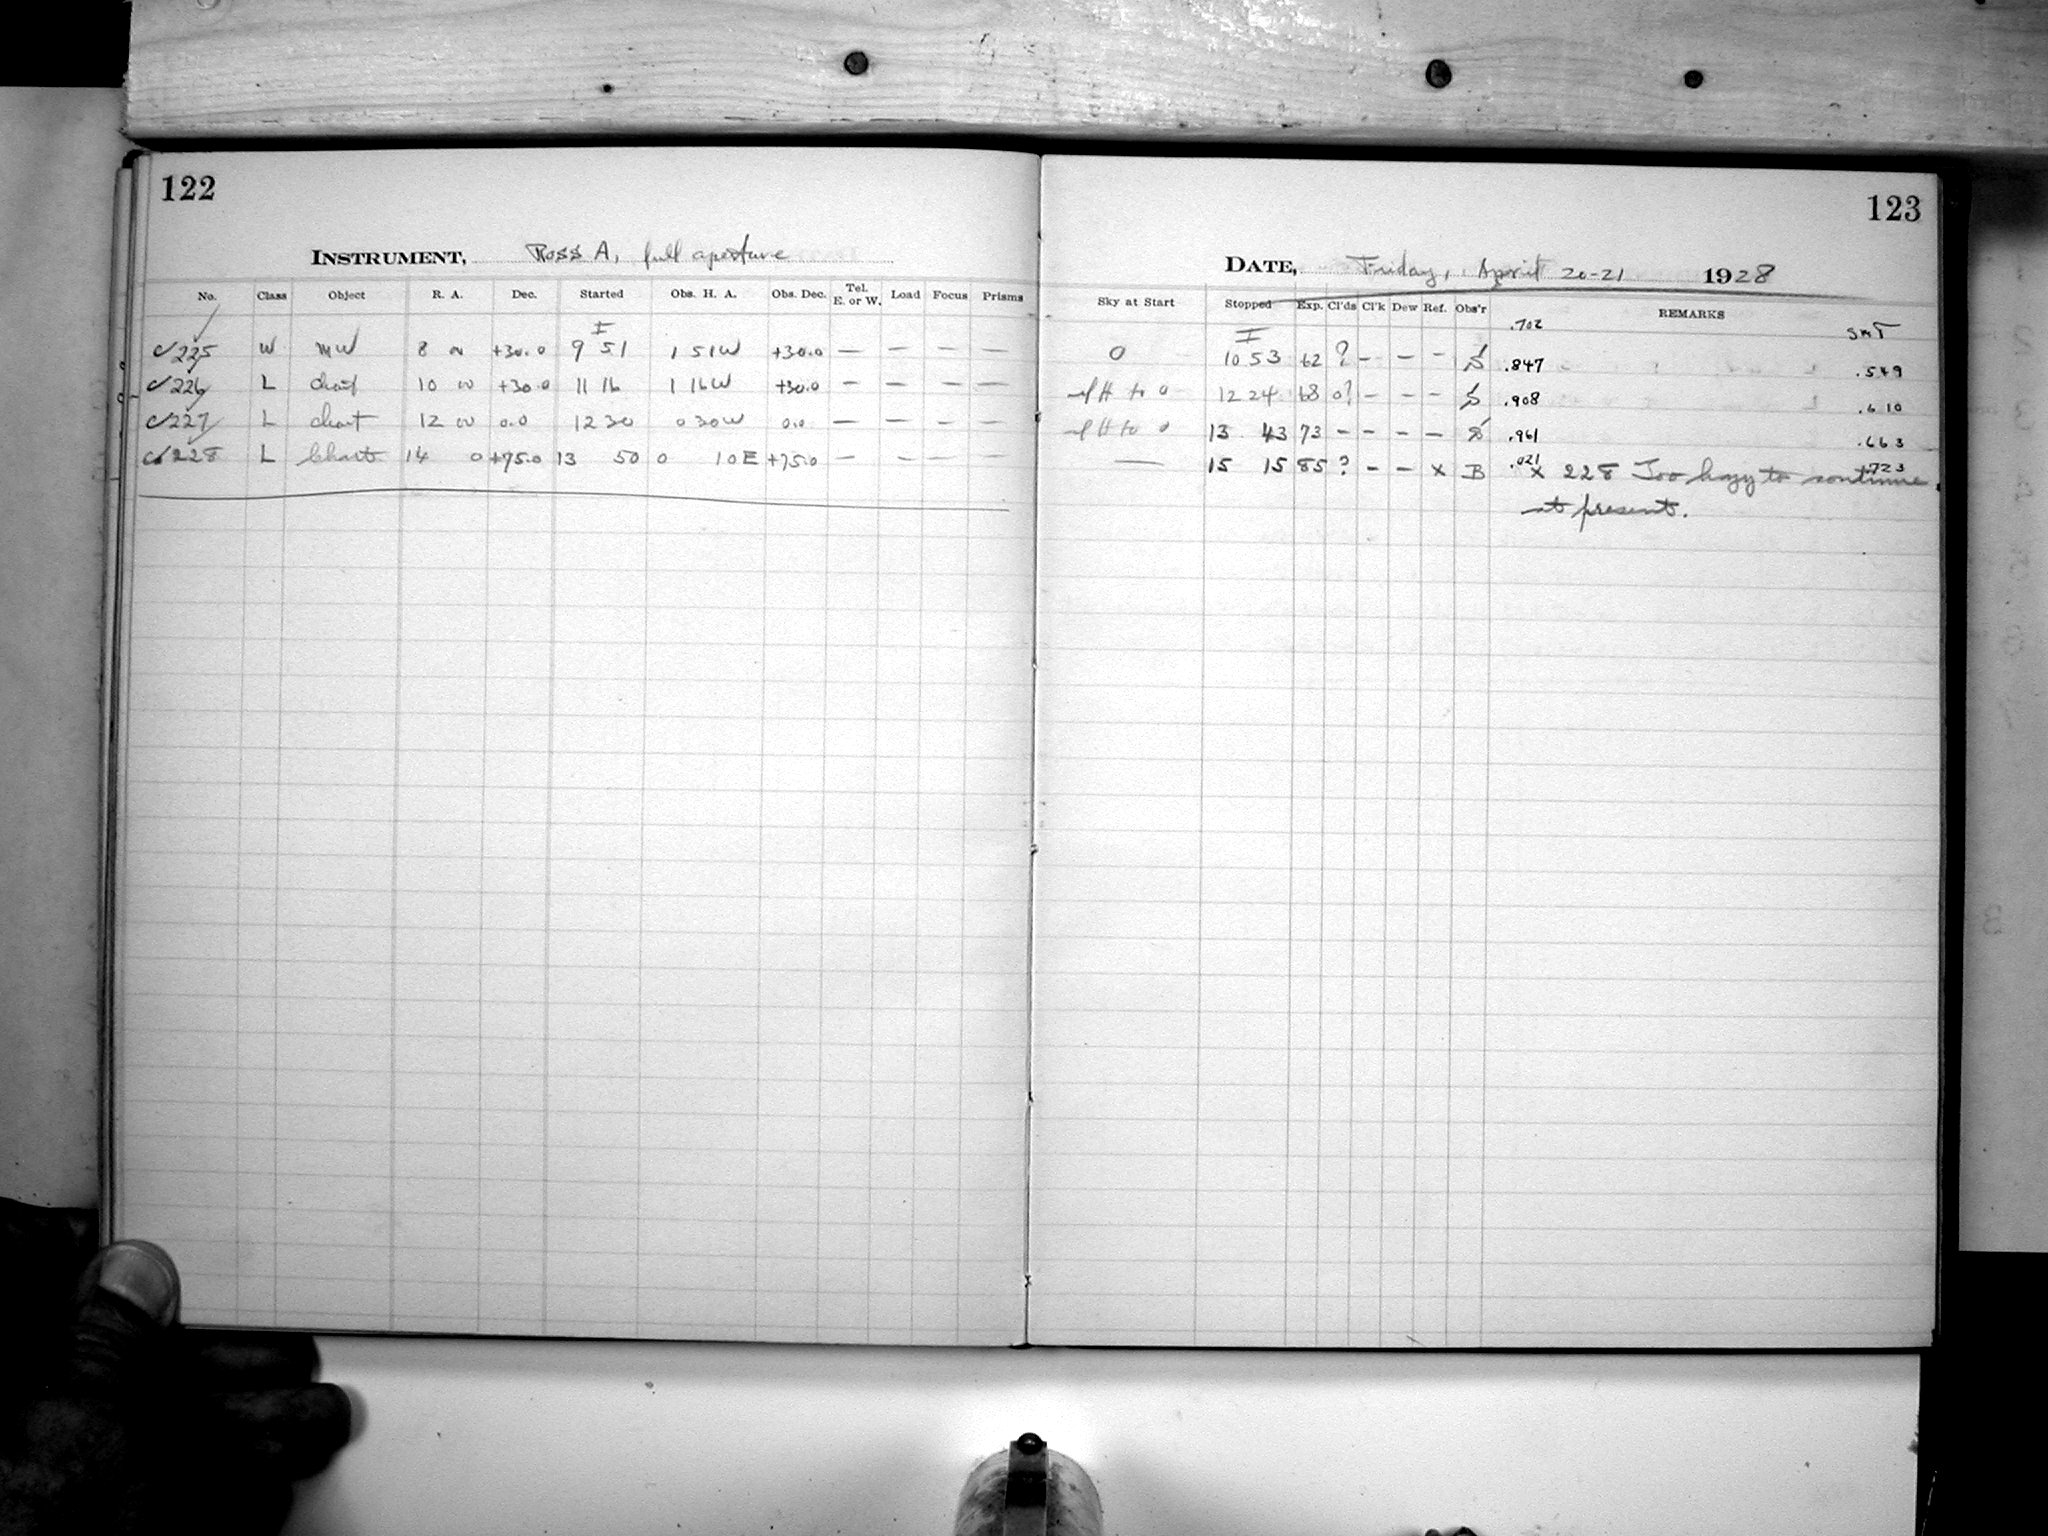 122
INSTRUMENT, Ross A, full aperture
No. Class Object R. A. Dec. Started Obs. H. A. Obs. Dec. Tel. E. or W. Load Focus Prisms
I
225 W MW 8 +30.0 9 51 1 51W +30.0 — — — —
226 L chart 10 +30.0 11 16 1 16W +30.0 — — — —
227 L chart 12 0.0 12 30 0 30W 0.0 — — — —
228 L Chart 14 0 +75.0 13 50 0 10E +75.0 — — — —
123
DATE, Friday, April 20-21 1928
Sky at Start Stopped Exp. Cl'ds Cl'k Dew Ref. Obs'r REMARKS
I .702 SMT
0 10 53 62 ? — — — S .847 .549
to 0 12 24 68 0? — — — S .908 .610
to 0 13 43 73 — — — — S .961 .663
— 15 15 85 ? — — x B .021 x 228 Too hazy to continue .723
at present.